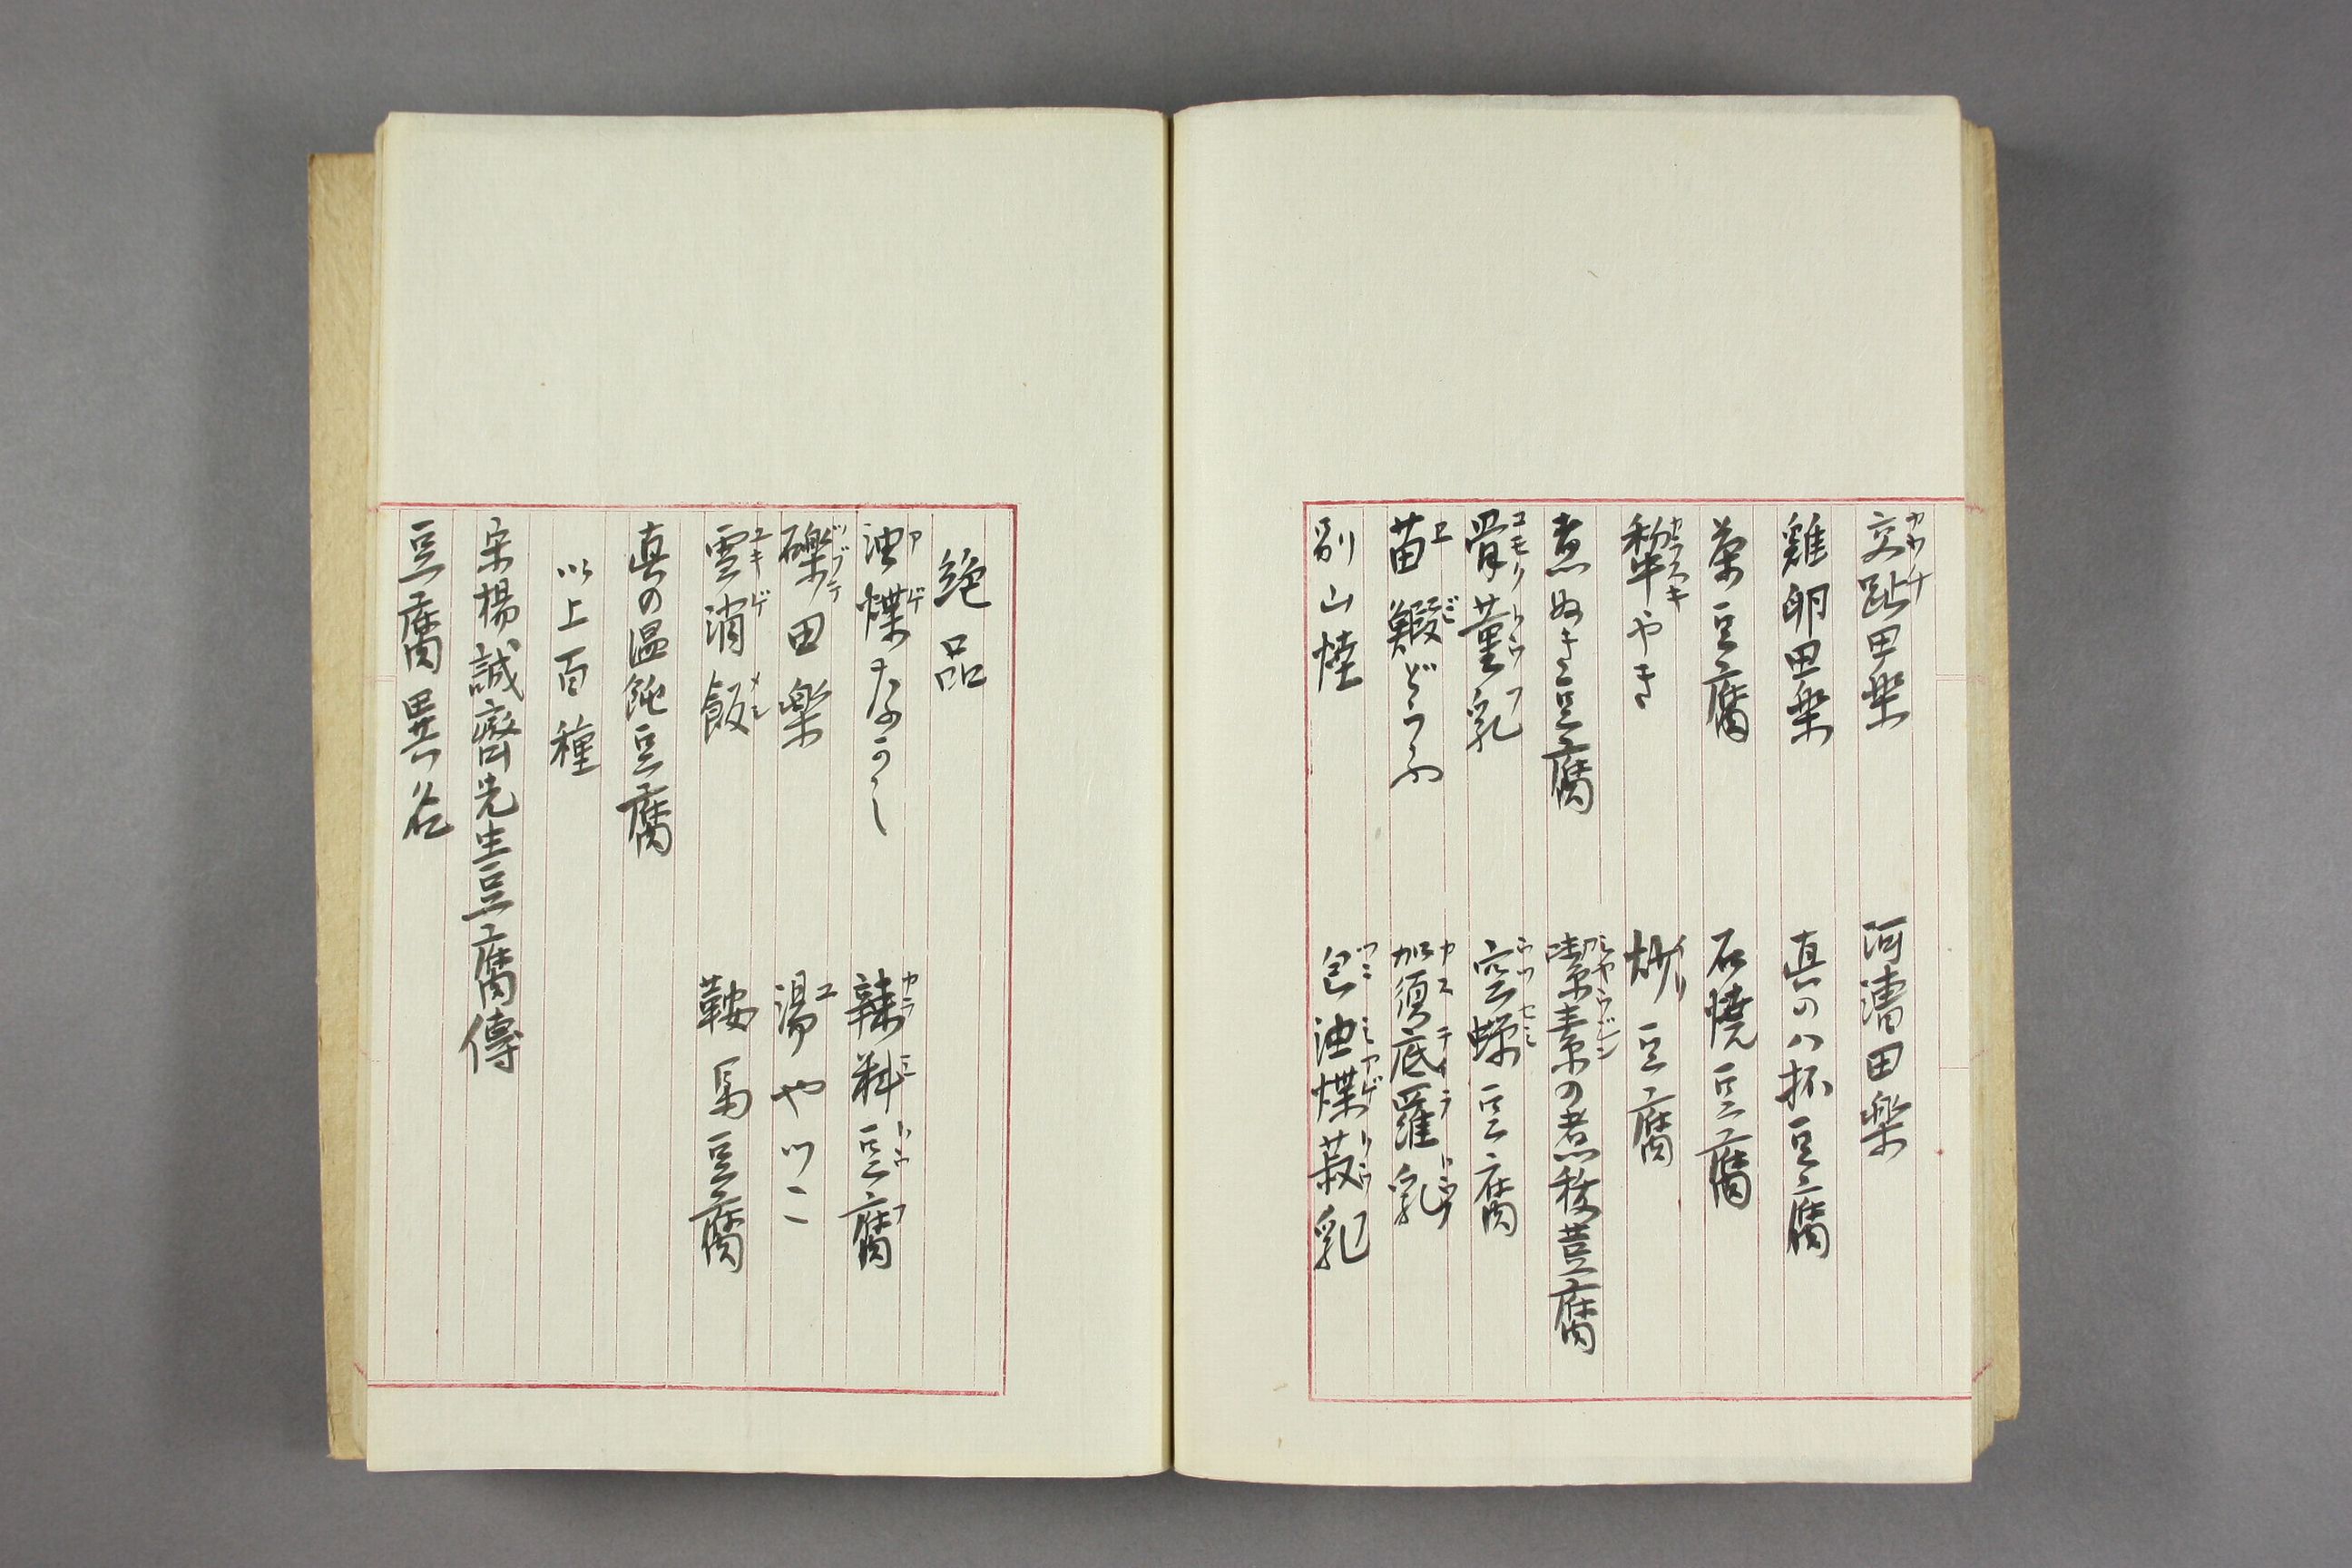 交趾田楽　河漕田楽
雞卵田楽　真の八杯豆腐
茶豆腐　石焼豆腐
犂やき　炒豆腐
煮ぬき豆腐　潔素の煮稜豆腐
骨董乳　空蝉豆腐
苗鰕どうふ　加須底羅乳
別山焼　包油煠菽乳
絶品
油煠ながし　辣料豆腐
礫田楽　湯やつこ
雪消飯　鞍馬豆腐
真の温飩豆腐
以上百種
宋楊誠齋先生豆腐傳
豆腐異名